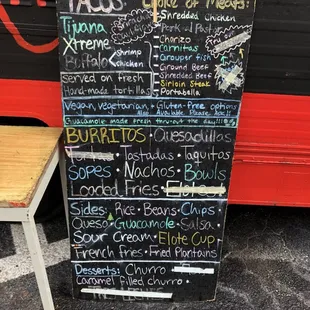 TACOS
Choice of Meats:
Tijuana
Xtreme
Buffalo
Shrimp
chicken
Served on fresh
Hand-made tortillas
Shredded Chicken
Pork al Pastor
Chorizo
Carnitas
Grouper fish
Ground Beef
Shredded Beef
Sirloin Steak
Portabella
Vegan, vegetarian, + Gluten-free options
also Available Please Ask
Guacamole made fresh thru-out the day!!!
BURRITOS • Quesadillas
Tortas • Tostadas • Taquitos
Sopes • Nachos • Bowls
Loaded Fries • Elotes
Sides: Rice • Beans • Chips
Queso • Guacamole • Salsa
Sour Cream • Elote Cup
French fries • Fried Plantains
Desserts: Churro
Caramel filled churro